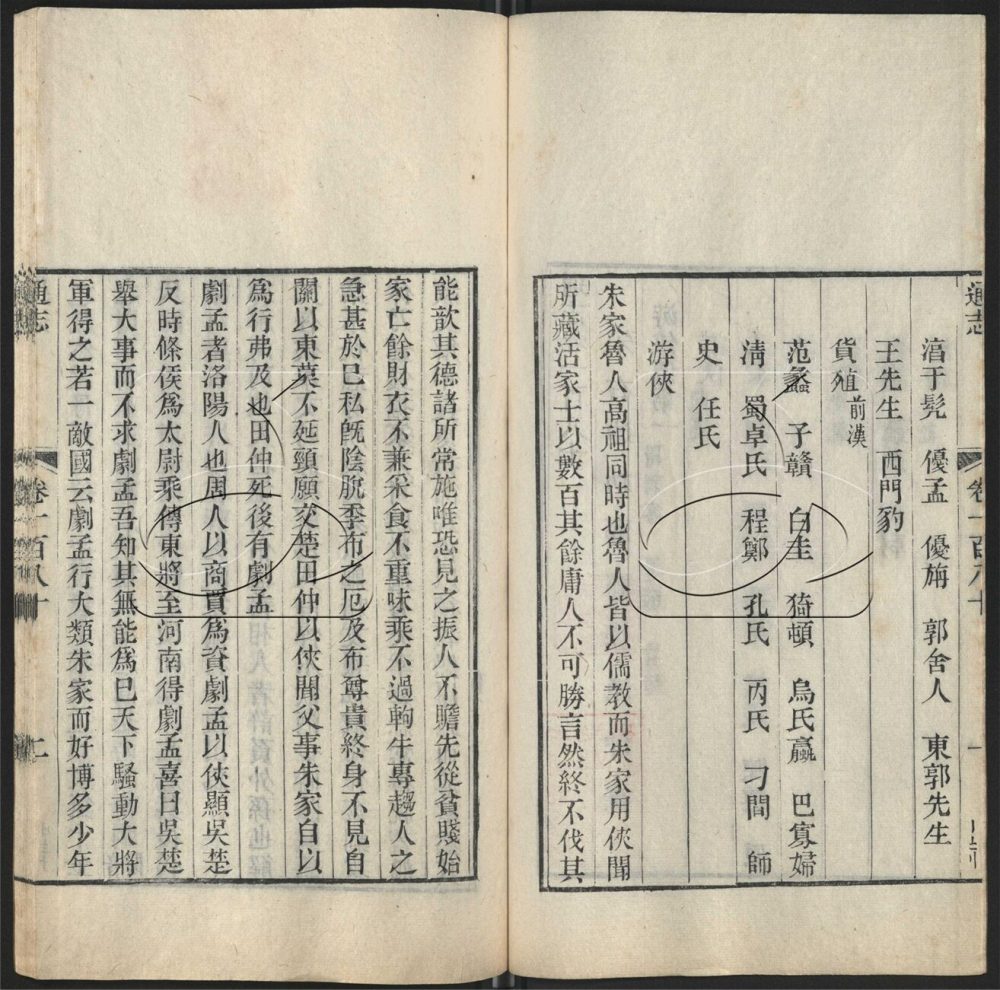 通志
卷一百八十
一
淳于髠　優孟　優旃　郭舍人　東郭先生
王先生　西門豹
貨殖前漢
范蠡　子贛　白圭　猗頓　烏氏蠃　巴寡婦
淸　蜀卓氏　程鄭　孔氏　丙氏　刁閒　師
史　任氏
游俠
朱家魯人高祖同時也魯人皆以儒教而朱家用俠聞
所藏活家士以數百其餘庸人不可勝言然終不伐其
能歆其德諸所常施唯恐見之振人不贍先從貧賤始
家亡餘財衣不兼采食不重味乘不過軥牛專趨人之
急甚於已私旣陰脫季布之厄及布尊貴終身不見自
關以東莫不延頸願交楚田仲以俠聞父事朱家自以
爲行弗及也田仲死後有劇孟
劇孟者洛陽人也周人以商賈爲資劇孟以俠顯吳楚
反時條侯爲太尉乘傳東將至河南得劇孟喜曰吳楚
舉大事而不求劇孟吾知其無能爲已天下騷動大將
軍得之若一敵國云劇孟行大類朱家而好博多少年
通志
卷一百八十
二